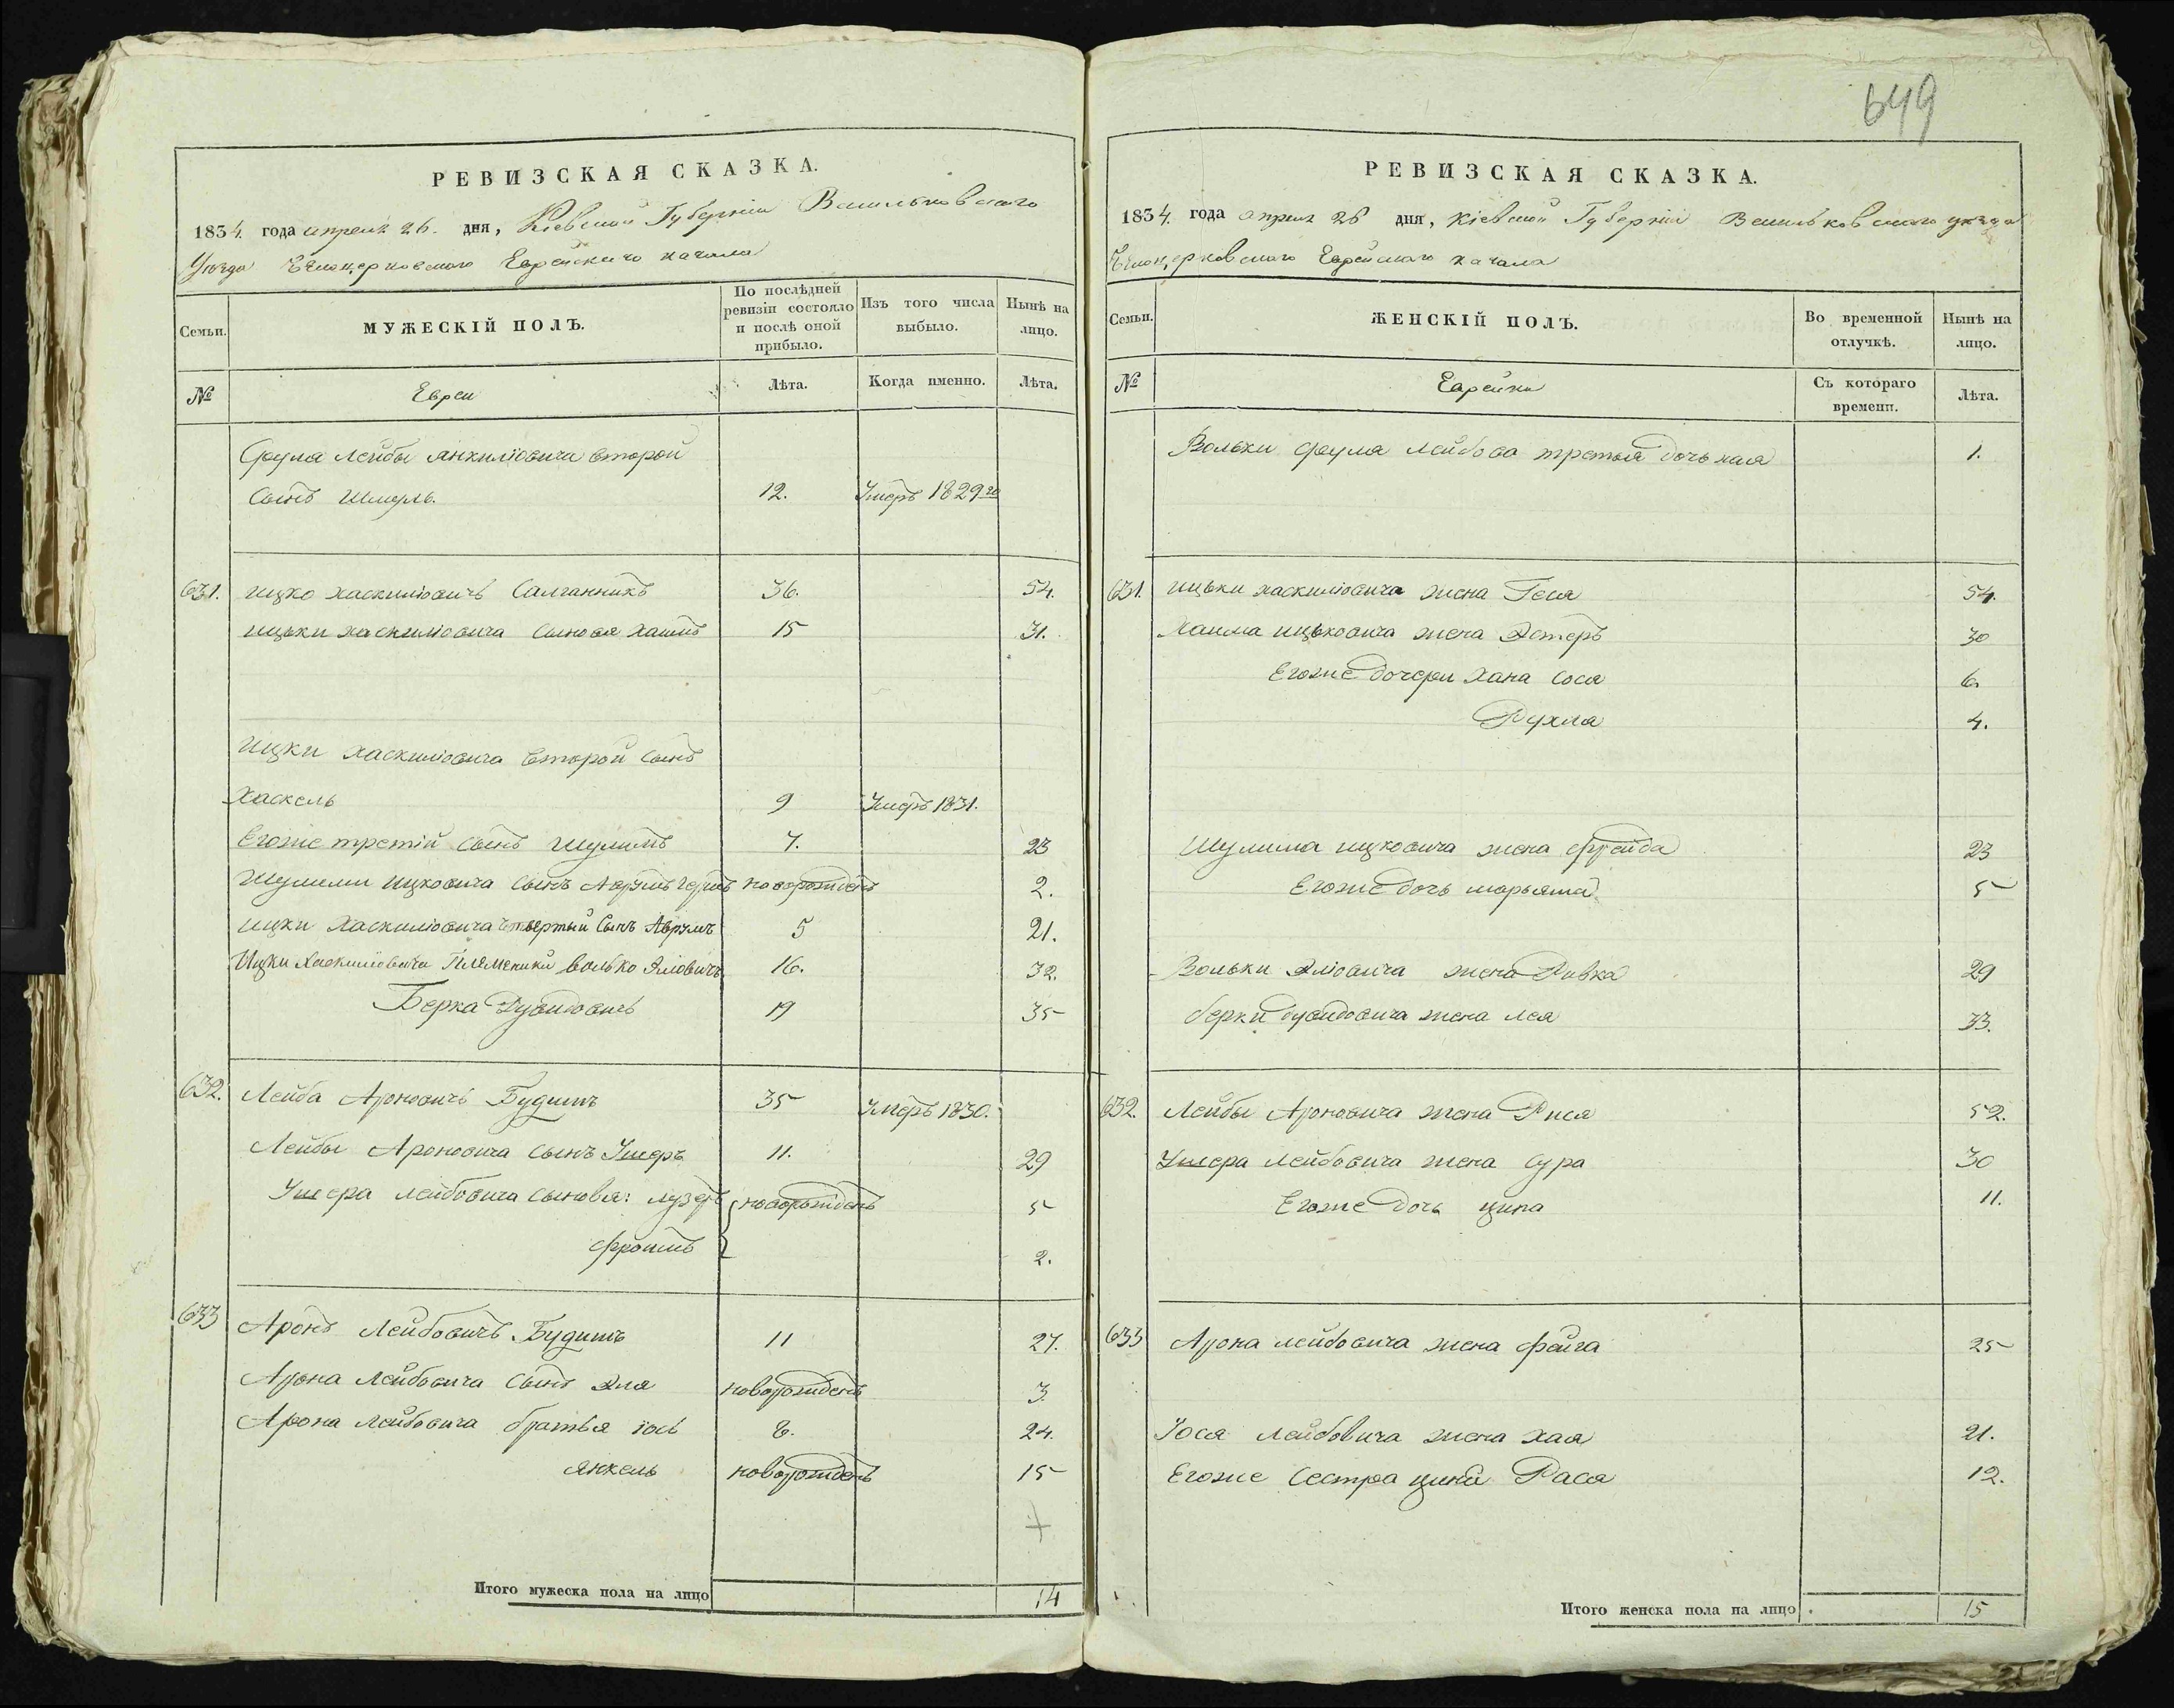 649
РЕВИЗСКАЯ СКАЗКА.
1834. года апреля 26. дня, Кіевской Губерніи Васильковского
Уезда Белоцерковского Еврейского кагала
Семьи.
МУЖЕСКІЙ ПОЛЪ.
По послѣдней ревизіи состояло и послѣ оной прибыло.
Изъ того числа выбыло.
Нынѣ на лицо.
№
Евреи
Лѣта.
Когда именно.
Лѣта.
Сруля Лейбы Янкиліовича второй
Сынъ Шмерль. 12. Умеръ 1829 го
631. Ицко Хаскиліовичъ Салганникъ 36. 54.
Ицьки Хаскиліовича Сыновя Хаимъ 15 31.
Ицки Хаскиліовича второй Сынъ
Хаскель 9 Умеръ 1831.
Егоже третій Сынъ Шулимъ 7. 23
Шулими Ицковича Сынъ Аврумъ Гершъ новорожденъ 2.
Ицки Хаскиліовича четвертый Сынъ Аврумъ 5 21.
Ицки Хаскиліовича Племеники Волько Эліовичъ 16. 32.
Берка Дувидовичъ 19 35
632. Лейба Ароновичъ Будишъ 35 Умеръ 1830.
Лейбы Ароновича Сынъ Ушеръ 11. 29
Ушера Лейбовича Сыновя: Лузеръ новорожденъ 5
Фроимъ 2.
633 Аронъ Лейбовичъ Будишъ 11 27.
Арона Лейбовича Сынъ Эля новорожденъ 3.
Арона Лейбовича братья Іось 8. 24.
Янкель новорожденъ 15
Итого мужеска пола на лицо 14
РЕВИЗСКАЯ СКАЗКА.
1834. года апреля 26 дня, Кіевской Губерніи Васильковского уезда
Белоцерковского Еврейского кагала
Семьи.
ЖЕНСКІЙ ПОЛЪ.
Во временной отлучкѣ.
Нынѣ на лицо.
№
Еврейки
Съ котораго времени.
Лѣта.
Вольки Сруля Лейбова третья дочь Хая 1.
631. Ицьки Хаскиліовича жена Геся 54.
Хаима Ицьковича жена Эстеръ 30
Егоже дочери Хана Сося 6.
Рухля 4.
Шулима Ицковича жена Фрейда 23
Егоже дочь Марьяма 5
Вольки Эліовича жена Ривка 29
Берки Дувидовича жена Лея 33.
632. Лейбы Ароновича жена Рися 52.
Ушера Лейбовича жена Сура 30
Егоже дочь Ципа 11.
633 Арона Лейбовича жена Фейга 25
Іося Лейбовича жена Хая 21.
Егоже Сестра Рася 12.
Итого женска пола на лицо 15